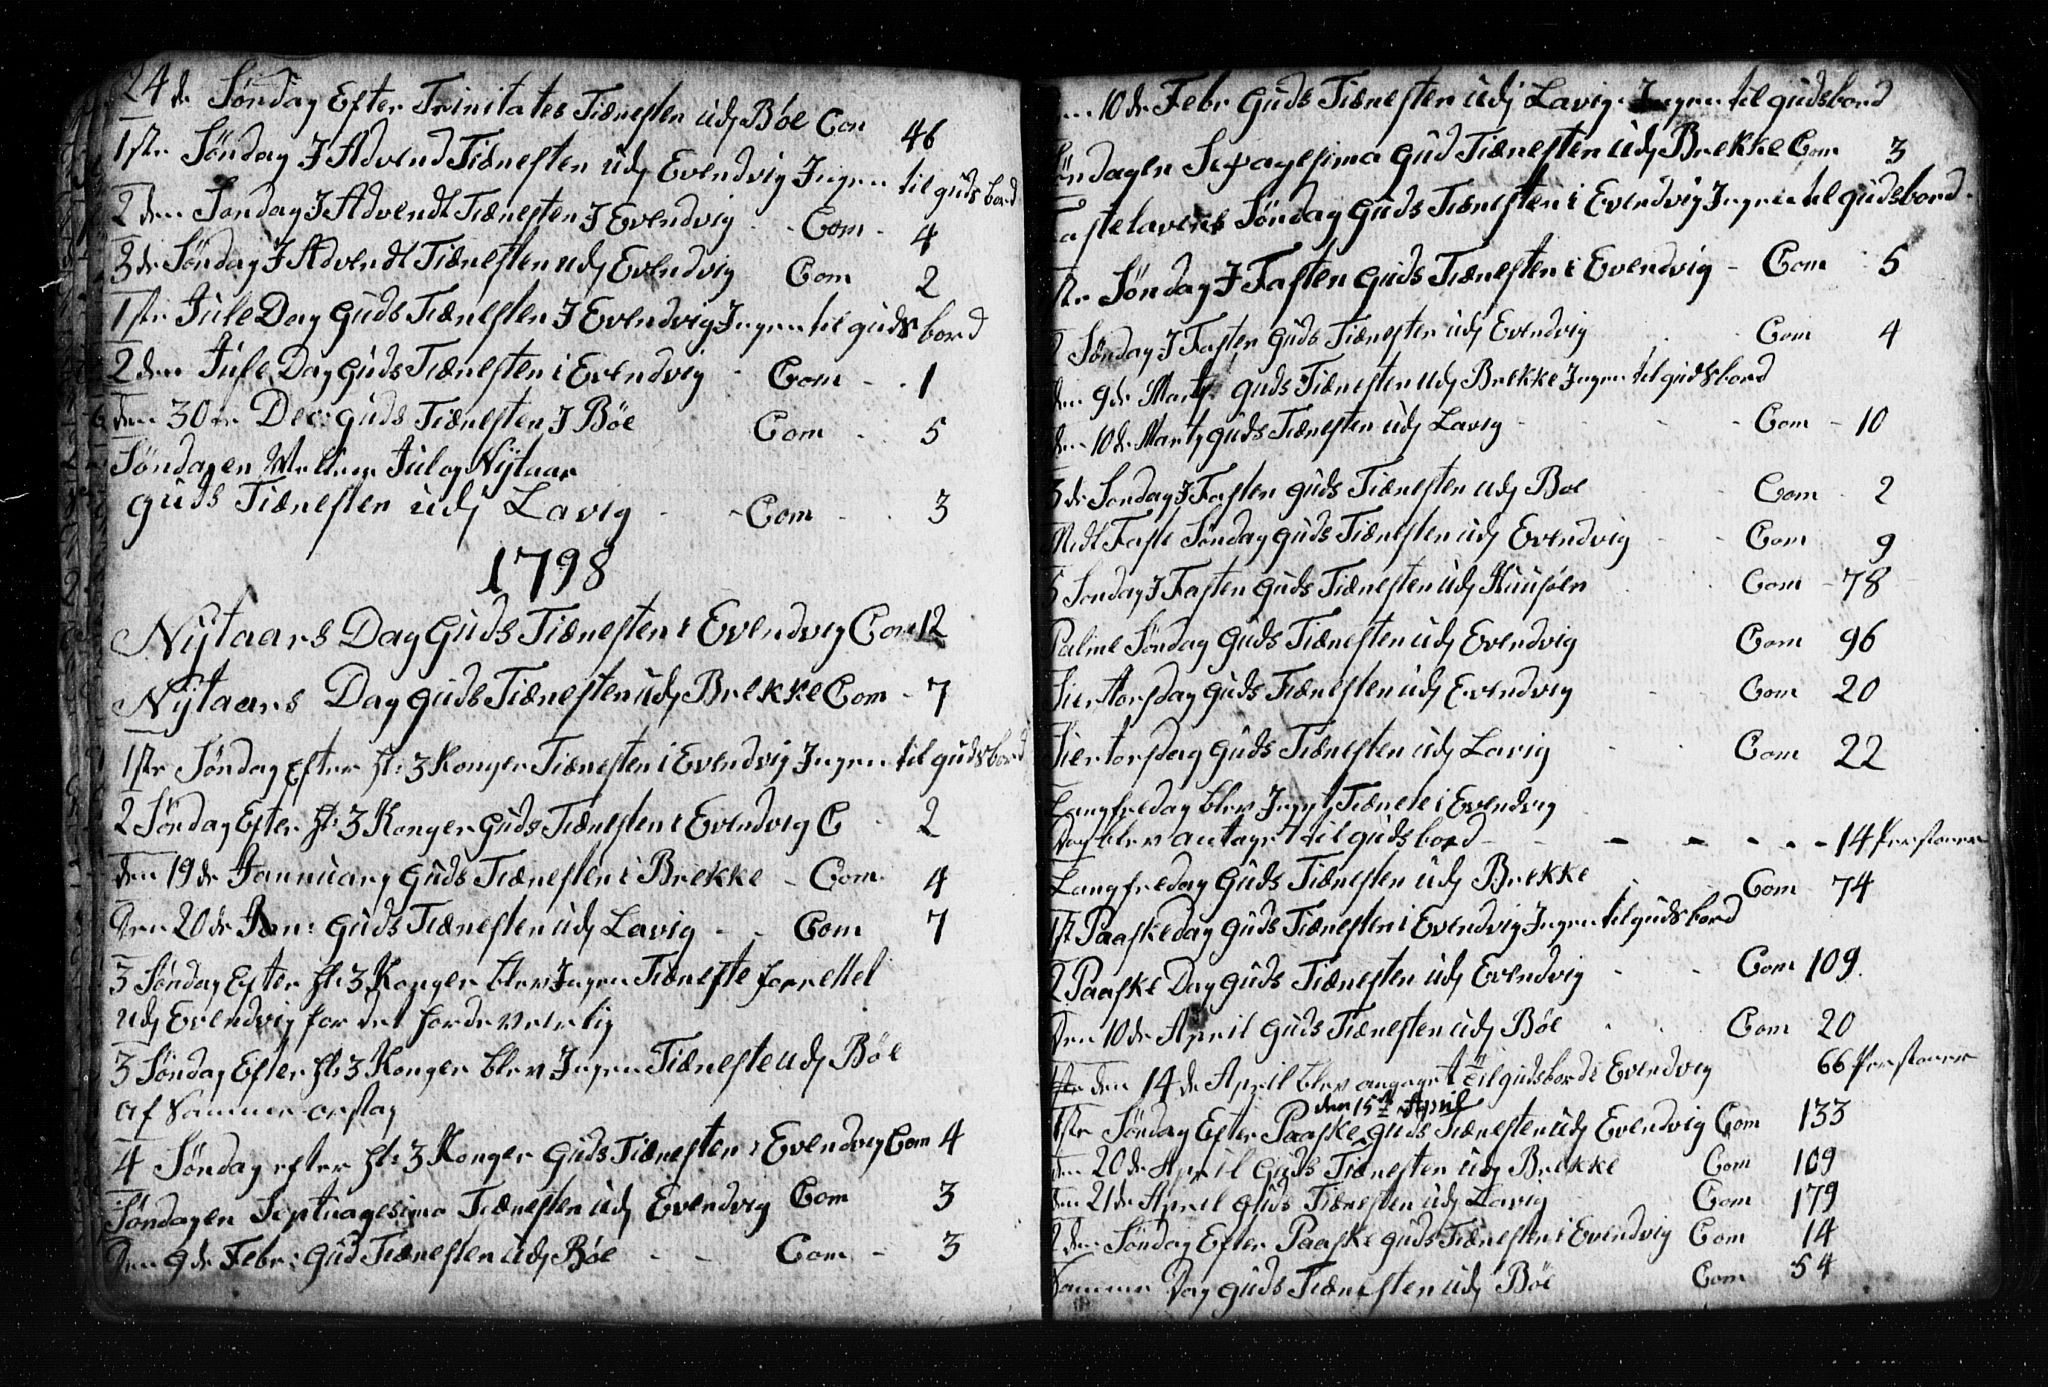 24 de Søndag Efter Trinitates Tiænesten udj Bøe Com 46
1ste Søndag J Advend Tiænesten udj Evendvig Jngen til guds bord
2 den Søndag J Advendt Tiænesten J Evendvig - - Com - 4
3 de Søndag J Advendt Tiænesten udj Evendvig Com 2
1ste Jule Dag Guds Tiænesten J Evendvig Jngen til guds bord
2 den Jule Dag Guds Tiænesten i Evendvig - Com - . 1
den 30 te Dec: guds Tiænesten J Bøe Com . 5
Søndagen Mellem Jul og Nÿtaar
guds Tiænesten udj Lavig - - Com - . 3
1798
Nÿtaars Dag Guds Tiænesten i Evendvig Com 12
Nÿtaars Dag guds Tiænesten udj Brekke Com - 7
1ste Søndag Efter H: 3 Konger Tiænesten i Evendvig Jngen til guds bord
2 Søndag Efter H: 3 Konger Guds Tiænesten i Evendvig C - 2
den 19 de Januuarj Guds Tiænesten i Brekke - Com 4
Den 20 de Jan: Guds Tiænesten udj Lavig - - Com 7
3 Søndag Efter H: 3 Konger blev Jngen Tiæneste forrettet
udj Evendvig for det
3 Søndag Efter H: 3 Konger blev Jngen Tiæneste udj Bøe
af Samme orsag
4 Søndag efter H: 3 Konger Guds Tiænesten i Evendvig Com 4
Søndagen Septuagesima Tiænesten udj Evendvig Com 3
Den 9 de Febr: Gud Tiænesten udj Bøe - - Com - 3
10 de Febr Guds Tiænesten udj Lavig. Jngen til gudsbord
Søndagen Sexagesima Gud Tiænesten udj Brekke Com 3
Fastelavens Søndag Guds Tiænesten i Evendvig Jngen til gudsbord.
1ste Søndag J Fasten Guds Tiænesten i Evendvig - Com 5
2 Søndag J Fasten Guds Tiænesten udj Evendvig Com 4
den 9 de Martj. guds Tiænesten udj Brekke Jngen til gudsbord
den 10 de Martj guds Tiænesten udj Lavig - Com - 10
3 de Søndag J Fasten guds Tiænesten udj Bøe Com - 2
Midt Faste Søndag Guds Tiænesten udj Evendvig Com 9
5 Søndag J Fasten Guds Tiænesten udj Com - 78
Palme Søndag Guds Tiænesten udj Evendvig Com 96
Skiertorsdag guds Tiænesten udj Evendvig - Com 20
Skiertorsdag Guds Tiænesten udj Lavig Com 22
Langfredag blev Jngen Tiæneste i Evendvig
Dog blev antaget til gudsbord - - - - - - 14 Personer
Langfredag Guds Tiænesten udj Brekke Com 74
1ste Paaskedag Guds Tiænesten i Evendvig Jngen til guds bord
2 Paaske Dag Guds Tiænesten udj Evendvig - - Com 109
Den 10 de April Guds Tiænesten udj Bøe - Com 20
den 14 de April blev angaget til gudsbord i Evendvig 66 Personer
den 15de April
1ste Søndag Efter Paaske Guds Tiænesten udj Evendvig Com 133
den 20 de April Guds Tiænesten udj Brekke Com 109
den 21 de April Guds Tiænesten udj Lavig Com 179
2 den Søndag Efter Paaske guds Tiænesten i Evendvig Com 14
Samme Dag Guds Tiænesten udj Bøe Com 54